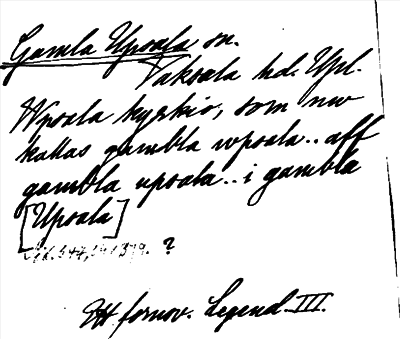 Gamla Upsala sn.
Vaksala hd. Upl.
Wpsala kyrkio, som nw
kallas gambla wpsala.. aff
gambla upsala.. i gambla
[Upsala]
?
Ett fornsv. Legend. III.